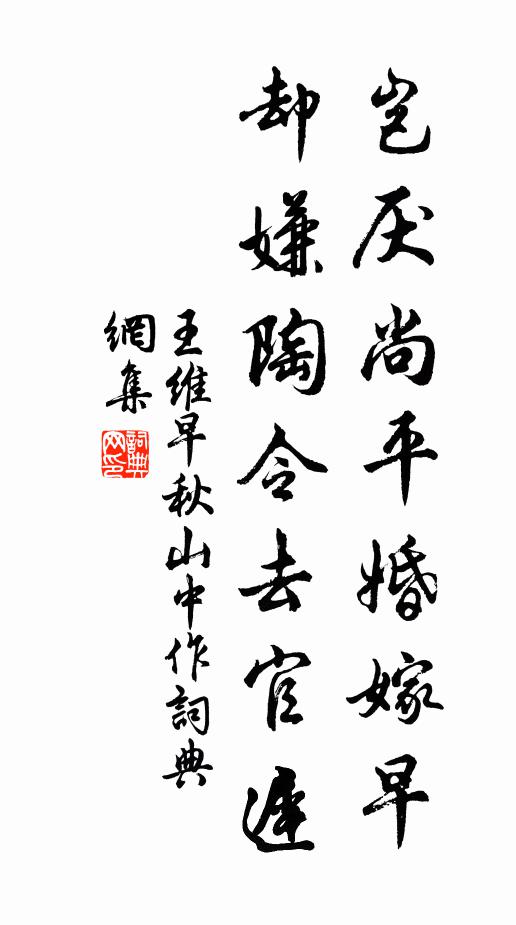 岂厌尚平婚嫁早
却嫌陶令去官遲
王維早秋山中作詞典
網集
詞典網印